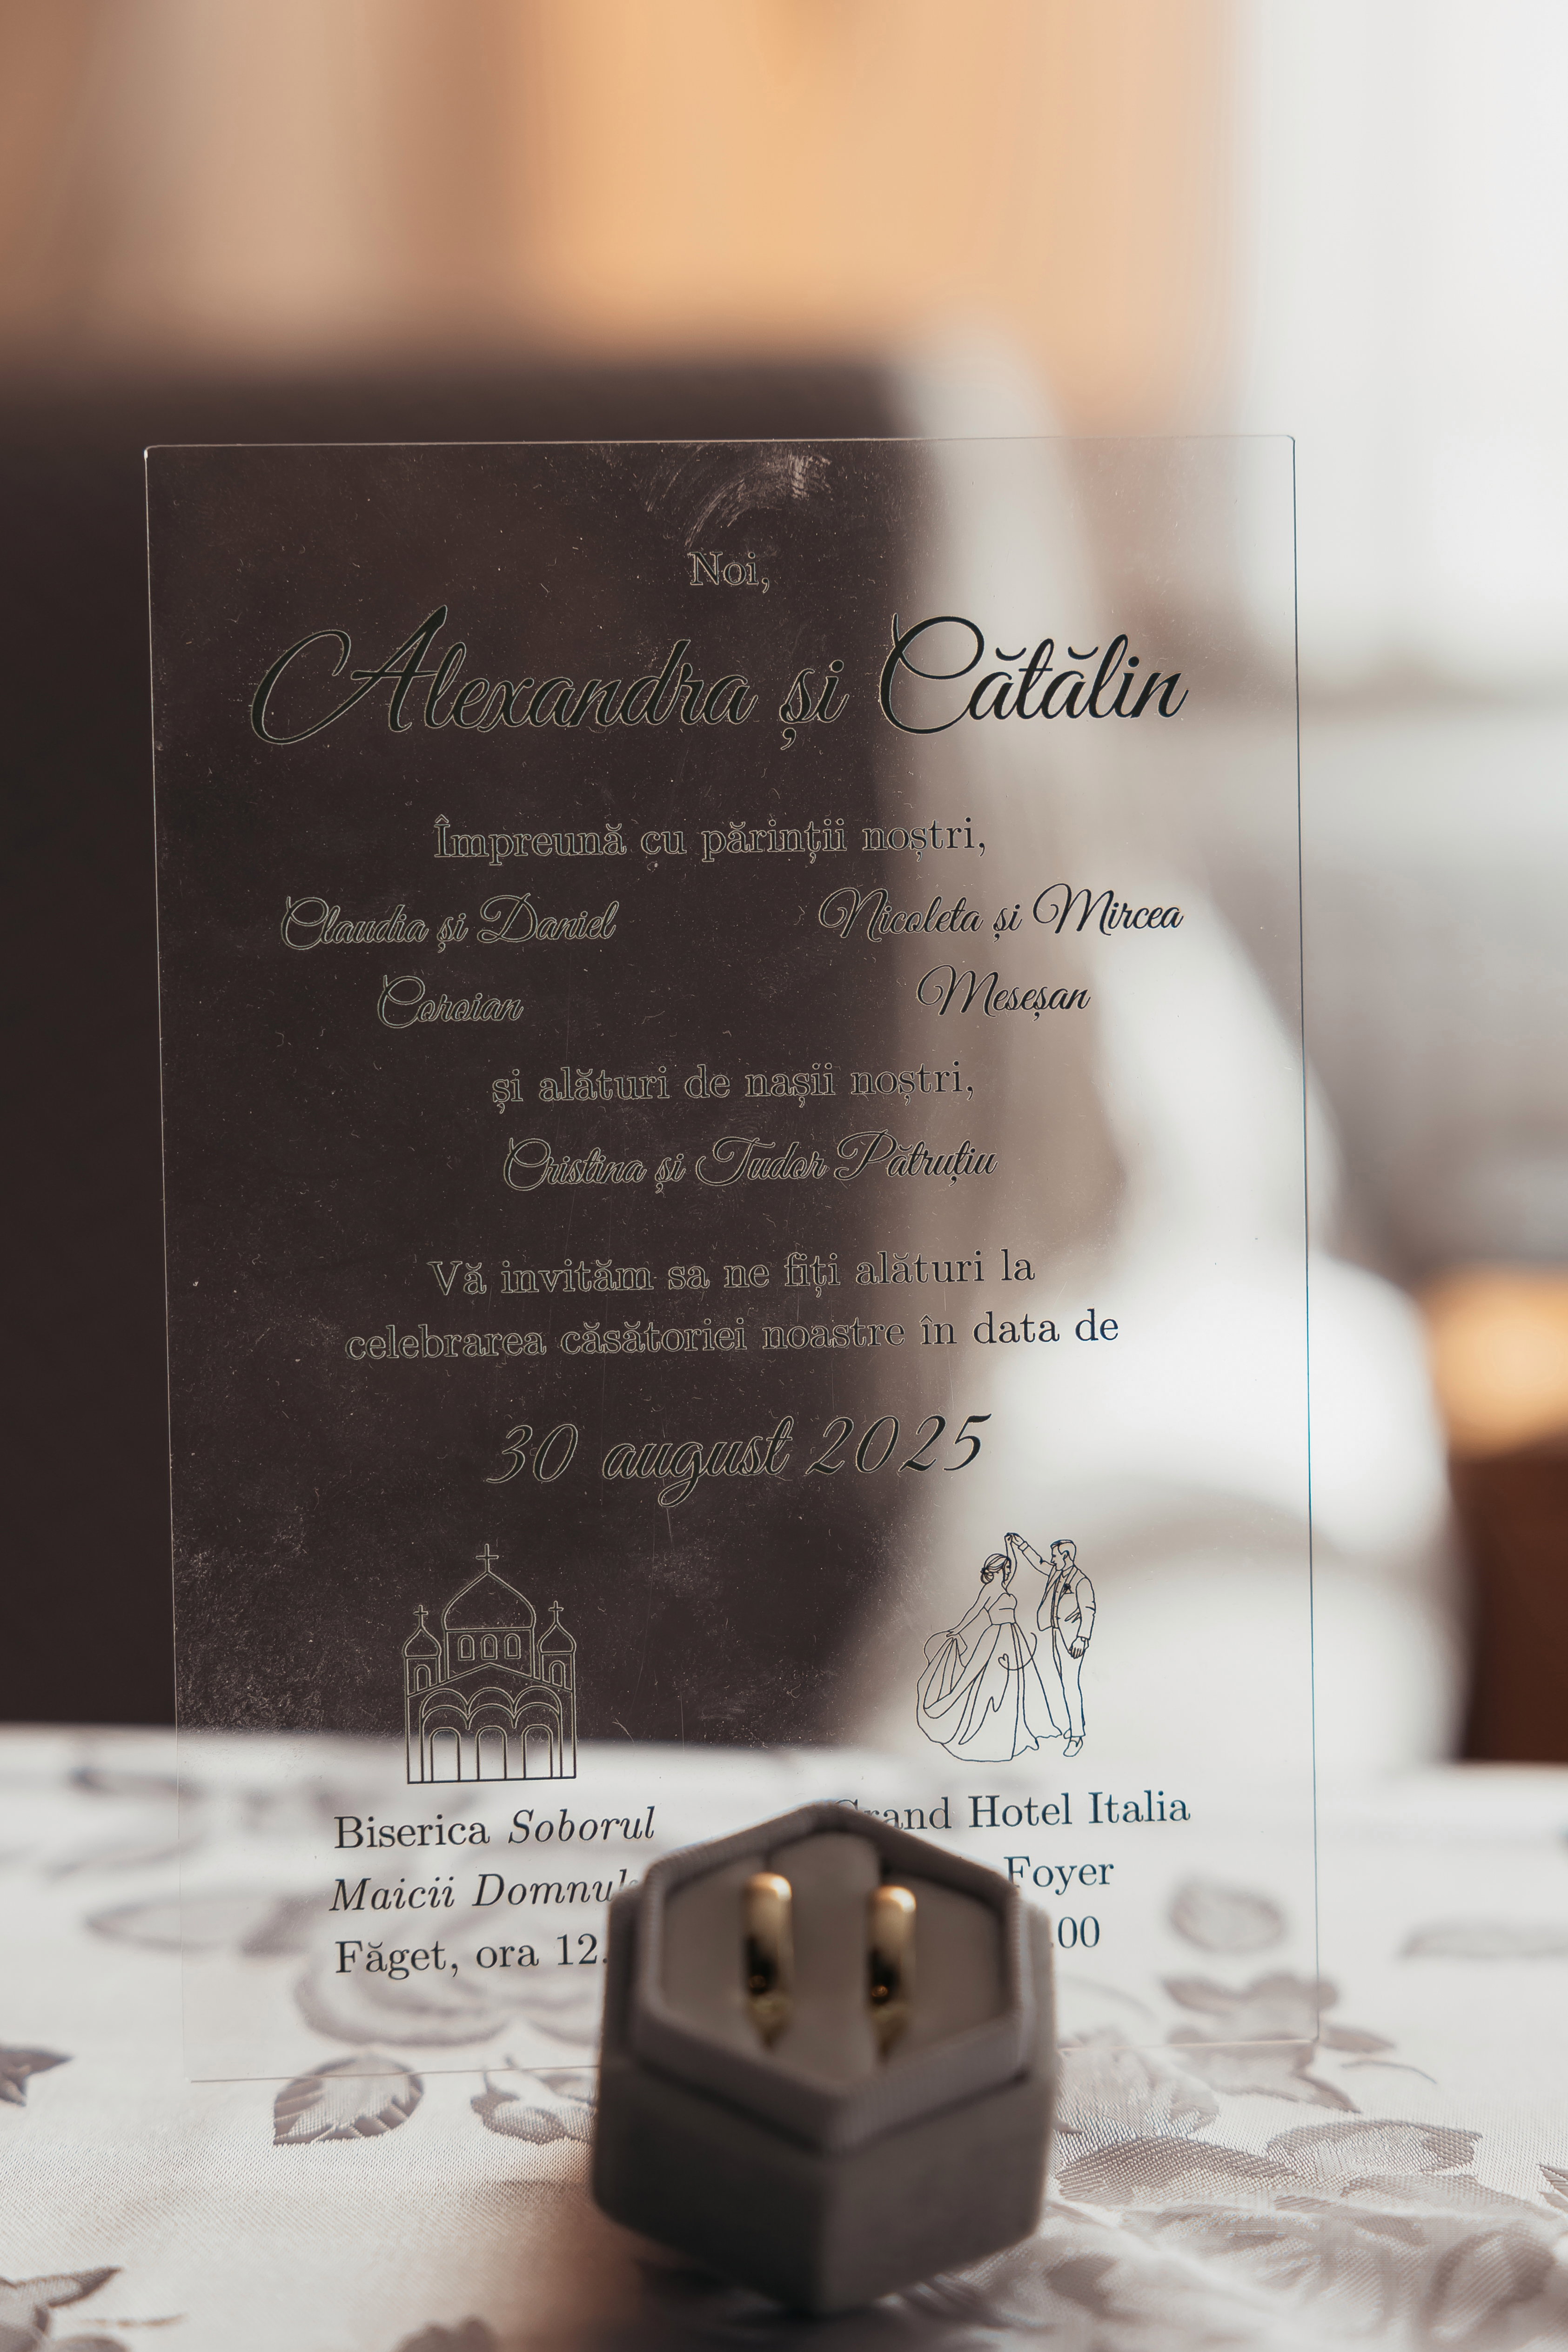 Noi,
Alexandra și Cătălin
Împreună cu părinții noștri,
Claudia și Daniel
Coroian
Nicoleta și Mircea
Meseșan
și alături de nașii noștri,
Cristina și Tudor Pătruțiu
Vă invităm sa ne fiți alături la
celebrarea căsătoriei noastre în data de
30 august 2025
Biserica Soborul
Maicii
Făget, ora 12.
Grand Hotel Italia
Foyer
.00